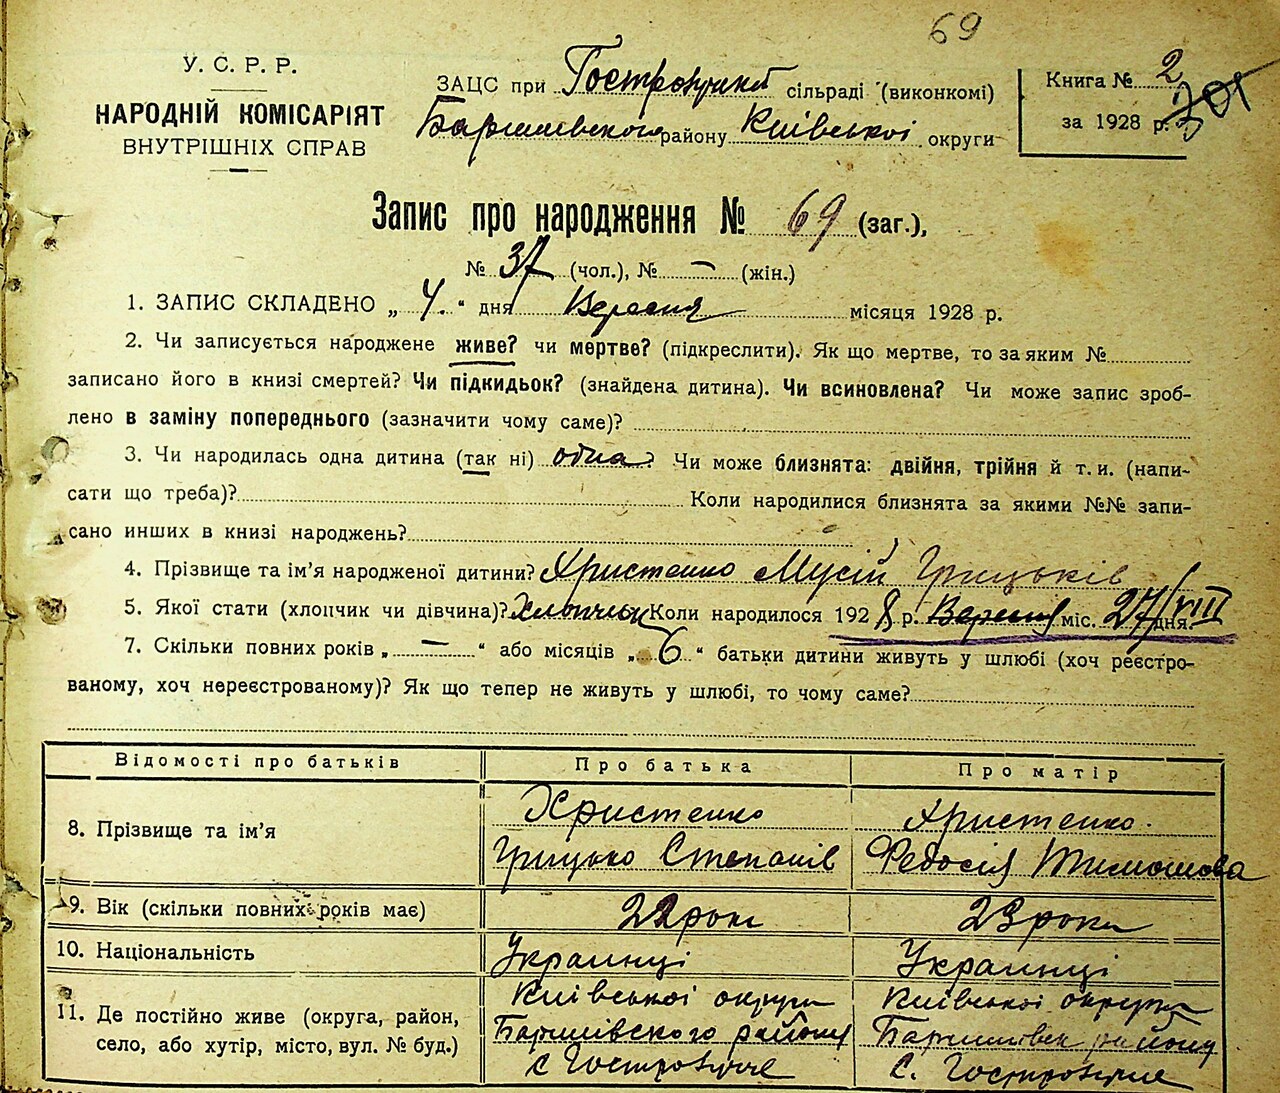 69
У. С. Р. Р.
НАРОДНІЙ КОМІСАРІЯТ
ВНУТРІШНІХ СПРАВ
ЗАЦС при Гостролуцкій сільраді (виконкомі)
Баришівского району Київської округи
Книга № 2
за 1928 р. 201
Запис про народження № 69 (заг.),
№ 37 (чол.), № — (жін.)
1. ЗАПИС СКЛАДЕНО „ 4. “ дня Вересня місяця 1928 р.
2. Чи записується народжене живе? чи мертве? (підкреслити). Як що мертве, то за яким №
записано його в книзі смертей? Чи підкидьок? (знайдена дитина). Чи всиновлена? Чи може запис зроб-
лено в заміну попереднього (зазначити чому саме)?
3. Чи народилась одна дитина (так ні) одна? Чи може близнята: двійня, трійня й т. и. (напи-
сати що треба)? Коли народилися близнята за якими №№ запи-
сано инших в книзі народжень?
4. Прізвище та ім’я народженої дитини? Христенко Мусій Грицьків
5. Якої стати (хлопчик чи дівчина)? Хлопчик Коли народилося 1928 р. Вересня міс. 27/VIII дня.
7. Скільки повних років „ — “ або місяців „ 6 “ батьки дитини живуть у шлюбі (хоч реєстро-
ваному, хоч нереєстрованому)? Як що тепер не живуть у шлюбі, то чому саме?
Відомості про батьків Про батька Про матір
8. Прізвище та ім’я Христенко Грицько Степанів Христенко Федосія Тимошова
9. Вік (скільки повних років має) 22 роки 23 роки
10. Національність Украинці Украинці
11. Де постійно живе (округа, район,
село, або хутір, місто, вул. № буд.)
Київської округи
Баришівского району
с Гостролуччє
Київської округи
Баришівск району
с. Гостролуччє